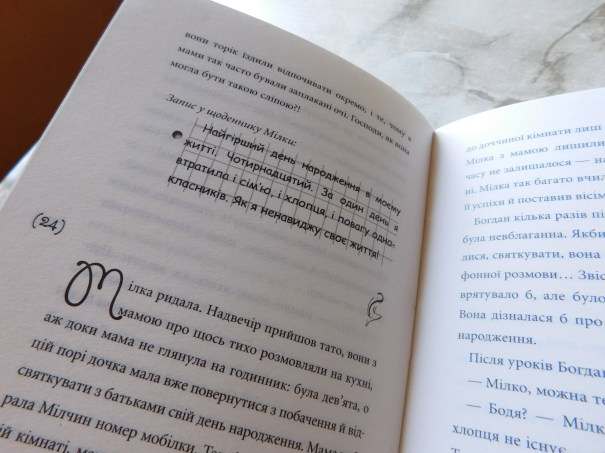 вони торік їздили відпочивати окремо, і те, чому в
мами так часто бували заплакані очі. Господи, як вона
могла бути такою сліпою?!
Запис у щоденнику Мілки:
Найгірший день народження в моєму
житті. Чотирнадцятий. За один день я
втратила і сім'ю, і хлопця, і повагу одно-
класників. Як я ненавиджу своє життя!
(24)
Мілка ридала. Надвечір прийшов тато, вони з
мамою про щось тихо розмовляли на кухні,
аж доки мама не глянула на годинник: була дев'ята, о
цій порі дочка мала вже повернутися з побачення й від-
святкувати з батьками свій день народження. Мама
рала Мілчин номер мобілки.
кімнаті,
до доччиної кімнати лиш
Мілка з мамою лишили
часу не залишалося — на
ні. Мілка так багато вчил
її успіхи й поставив вісім
Богдан кілька разів пі
була невблаганна. Якби
лися, святкувати, вона
фонної розмови… Звіс
врятувало б, але було
Вона дізналася б про
народження.
Після уроків Богдан
— Мілко, можна те
— Бодя? — Мілк
хлопця не існує